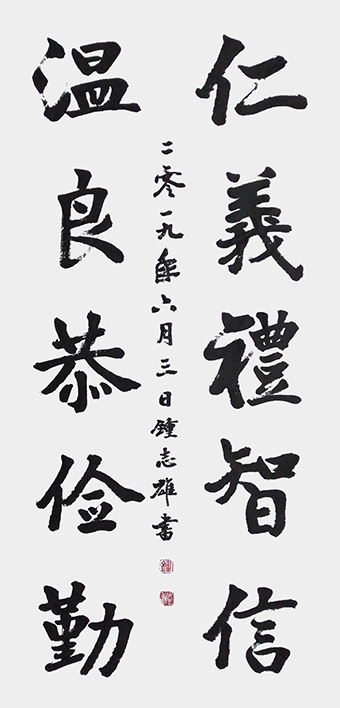 仁義禮智信
温良恭俭勤
二零一九年六月三日鍾志雄書